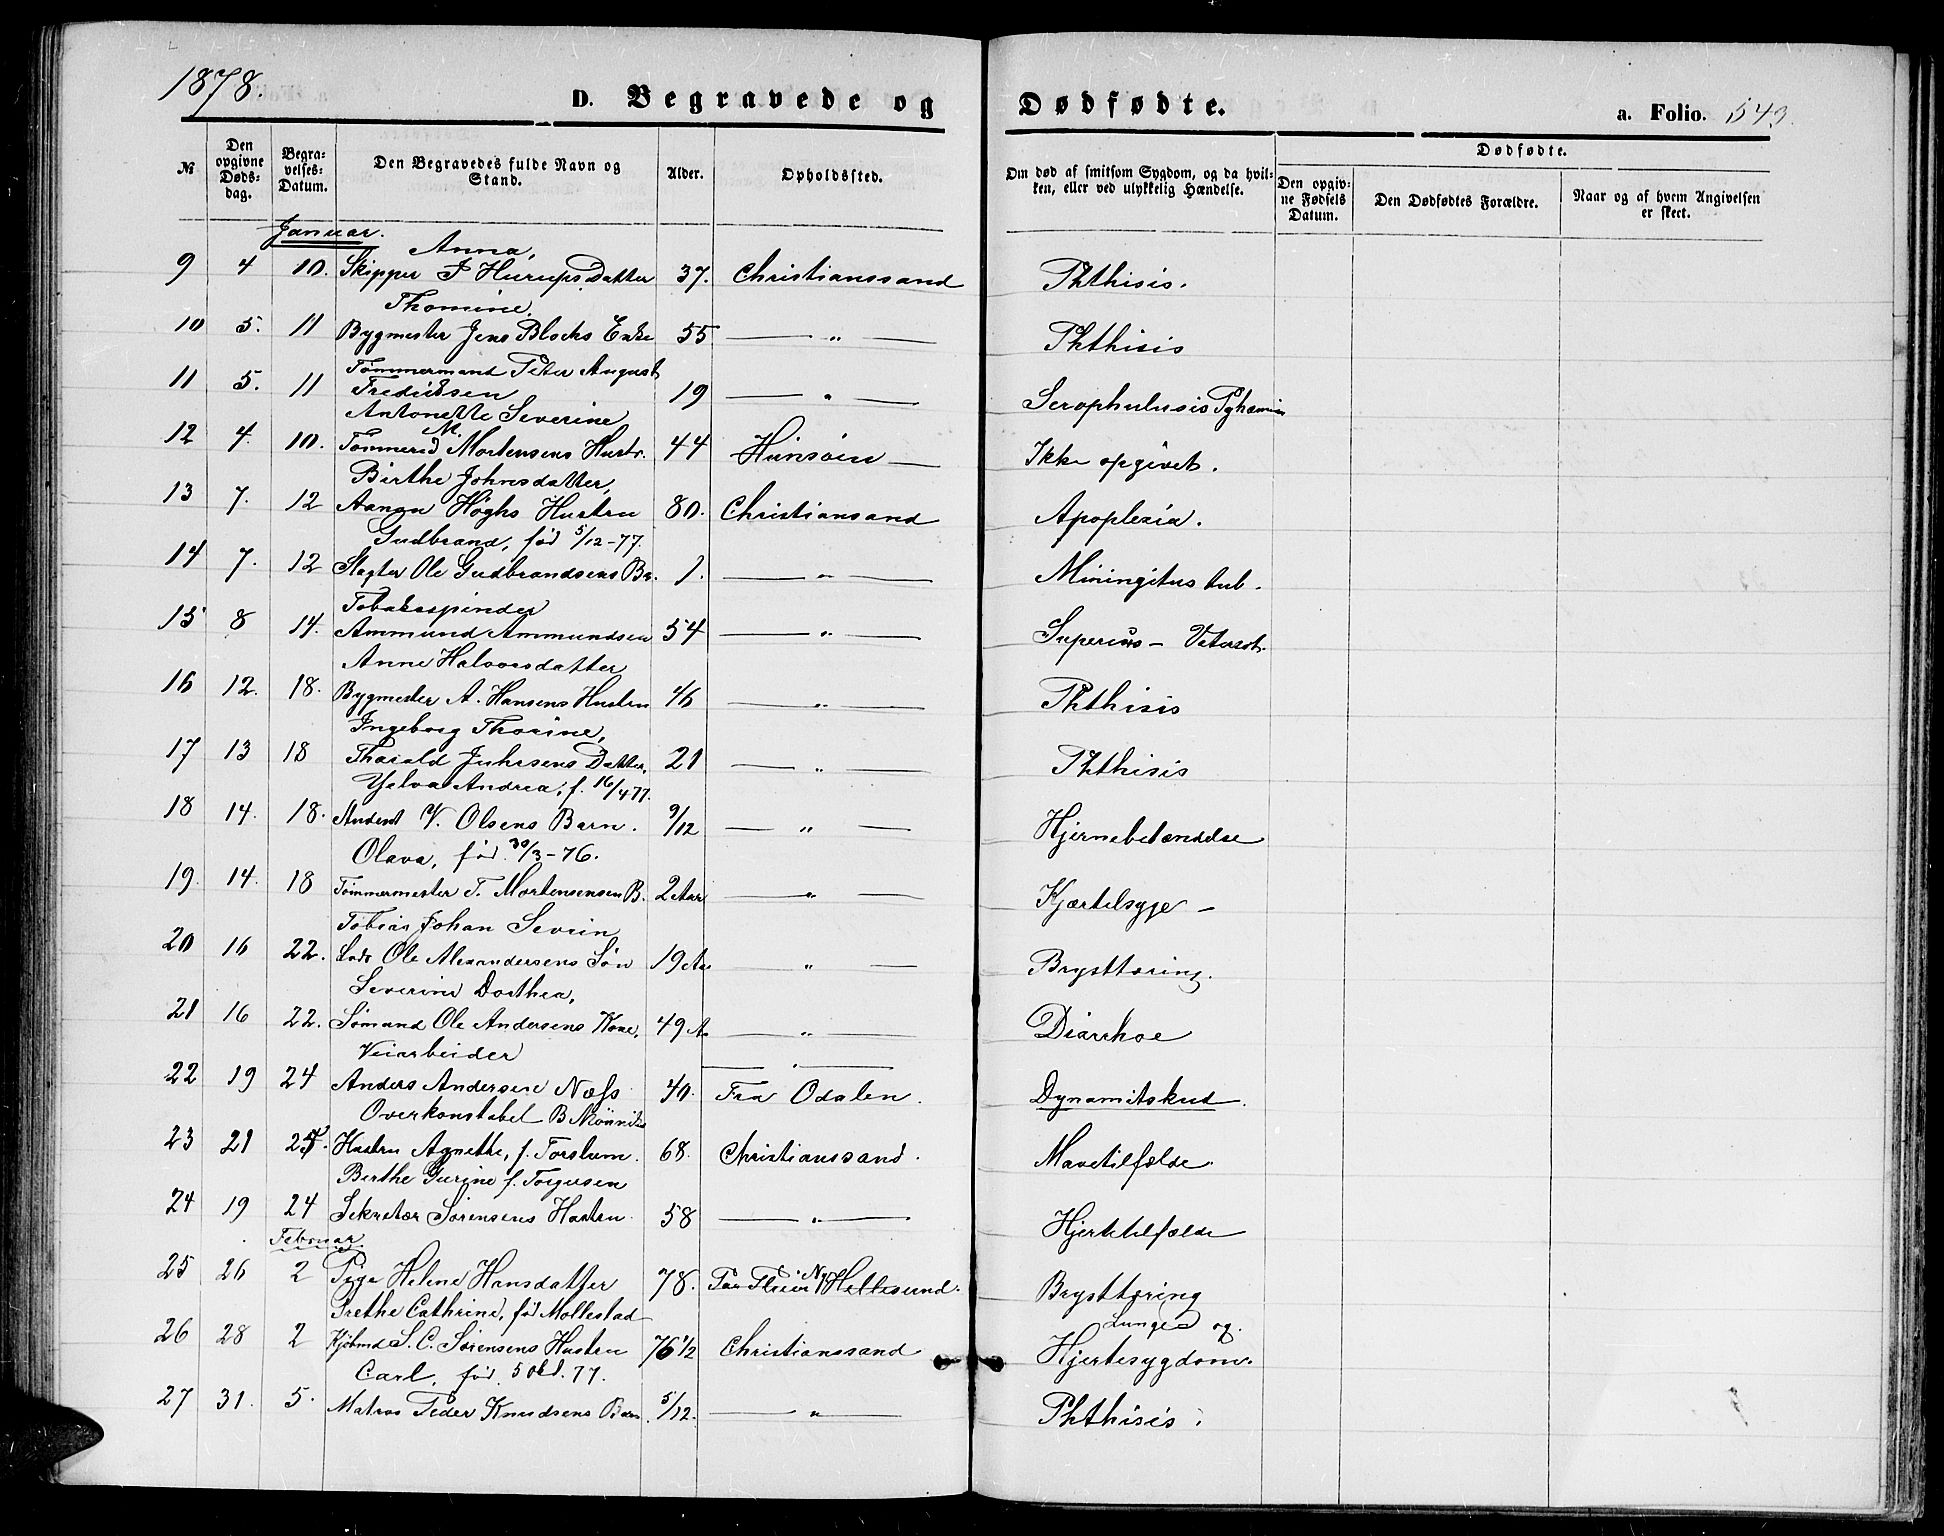 1878.
D. Begravede og Dødfødte.
a. Folio. 543.
№
Den opgivne Dødsdag.
Begravelses-Datum.
Den Begravedes fulde Navn og Stand.
Alder.
Opholdssted.
Om død af smitsom Sygdom, og da hvilken, eller ved ulykkelig Hændelse.
Dødfødte.
Den opgivne Fødsels Datum.
Den Dødfødtes Forældre.
Naar og af hvem Angivelsen er skeet.
Januar.
Anna,
9 4 10. Skipper P Hurups Datter 37. Christianssand Phthisis.
Thomine,
10 5. 11 Bygmester Jens Blocks Enke 55 — " — Phthisis
Tømmermand Peter August
11 5. 11 Fredriksen 19 — " —
Antonette Severine
12 4. 10. Mortensens Hustr. 44 — Ikke opgivet.
Birthe Johnsdatter,
13 7. 12 Aanon Høghs Hustru 80. Christiansand Apoplexia.
Gudbrand, fød 5/12-77.
14 7. 12 Slagter Ole Gudbrandsens Br. 1. — " — Miningitus tub.
Tobaksspinder
15 8 14. Ammund Ammundsen 54 — " —
Anne Halvorsdatter
16 12. 18. Bygmester A. Hansens Hustru 46 — " — Phthisis
Ingeborg Thorine,
17 13 18 Thorald Juhrsens Datter, 21 — " — Phthisis
Andrea, f. 16/4 77.
18 14. 18. V. Olsens Barn. 9/12 — " — Hjernebetændelse
Olava, fød 30/3-76.
19. 14. 18 Tømmermester T. Mortensensen B. 2 Aar — " — Kjærtelsyge —
Tobias Johan Severin
20 16 22. Lods Ole Alexandersens Søn 19 Aar — " — Brysttæring.
Severine Dorthea,
21 16 22. Sømand Ole Andersens Kone, 49 A — " — Diarrhoe
Veiarbeider
22 19 24 Anders Andersen Næss 40. Fra Odalen. Dynamitskud.
Overkonstabel B
23 21 Hustru Agnethe, f. Torslum. 68. Christianssand. Mavetilfælde.
Berthe Gurine f. Torgusen
24 19 24 Sekretær Sørensens Hustru 58 — " — Hjertetilfælde
Februar
25 26 2 Pige Helene Hansdatter 78. Ny Hellesund. Brysttæring
Grethe Cathrine, fød Mollestad
Lunge og
26 28 2 Kjøbmd S. C. Sørensens Hustru 76 1/2 Christianssand Hjertesygdom.
Carl, fød 5 okt. 77.
27 31. 5. Matros Peder Knudsens Barn. 5/12. — " — Phthisis.